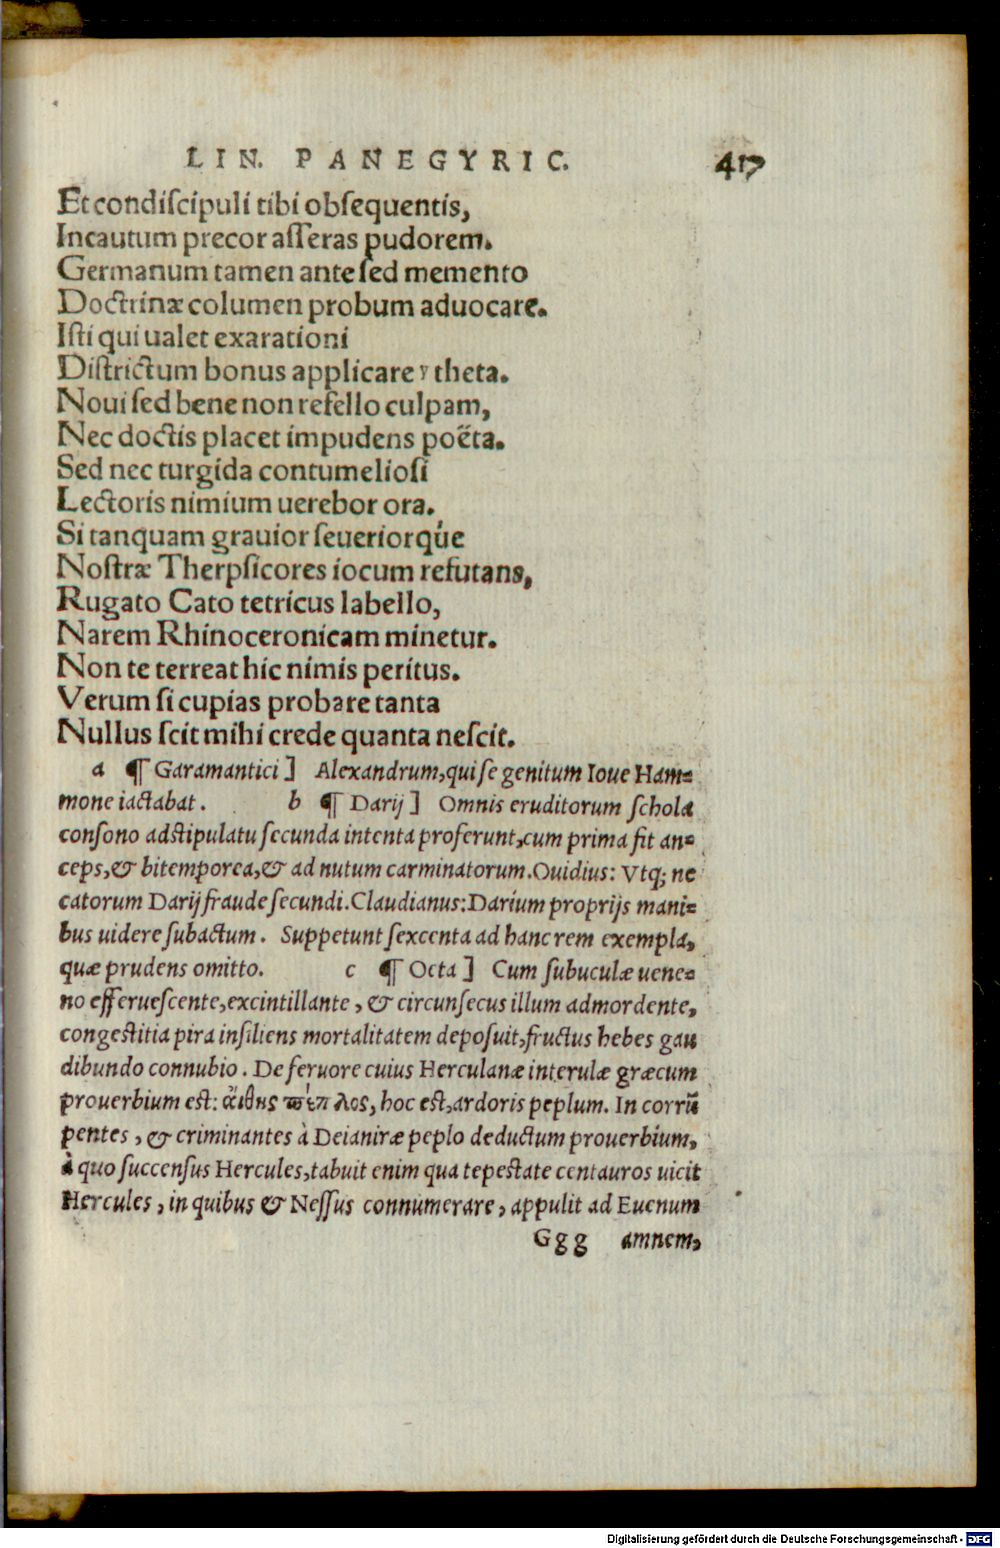 LIN. PANEGYRIC. 417
Et condiſcipuli tibi obſequentis,
Incautum precor aſſeras pudorem.
Germanum tamen ante ſed memento
Doctrinæ columen probum aduocare.
Iſti qui ualet exarationi
Diſtrictum bonus applicare theta.
Noui ſed bene non refello culpam,
Nec doctis placet impudens poëta.
Sed nec turgida contumelioſi
Lectoris nimium uerebor ora.
Si tanquam grauior ſeueriorq́ue
Noſtræ Therpſicores iocum refutans,
Rugato Cato tetricus labello,
Narem Rhinoceronicam minetur.
Non te terreat hic nimis peritus.
Verum ſi cupias probare tanta
Nullus ſcit mihi crede quanta neſcit.
a ¶ Garamantici ] Alexandrum, qui ſe genitum Ioue Ham=
mone iactabat. b ¶ Darij ] Omnis eruditorum ſchola
conſono adſtipulatu ſecunda intenta proferunt, cum prima ſit an=
ceps, & bitemporea, & ad nutum carminatorum. Ouidius: Vtq; ne
catorum Darij fraude ſecundi. Claudianus: Darium proprijs mani=
bus uidere ſubactum. Suppetunt ſexcenta ad hanc rem exempla,
quæ prudens omitto. c ¶ Octa ] Cum ſubuculæ uene=
no efferueſcente, excintillante, & circunſecus illum admordente,
congeſtitia pira inſiliens mortalitatem depoſuit, fructus hebes gau
dibundo connubio. De feruore cuius Herculanæ interulæ græcum
prouerbium eſt: hoc eſt, ardoris peplum. In corrũ
pentes, & criminantes à Deianiræ peplo deductum prouerbium,
à quo ſuccenſus Hercules, tabuit enim qua tepeſtate centauros uicit
Hercules, in quibus & Neſſus connumerare, appulit ad Euenum
Ggg amnem,
Digitalisierung gefördert durch die Deutsche Forschungsgemeinschaft - DFG